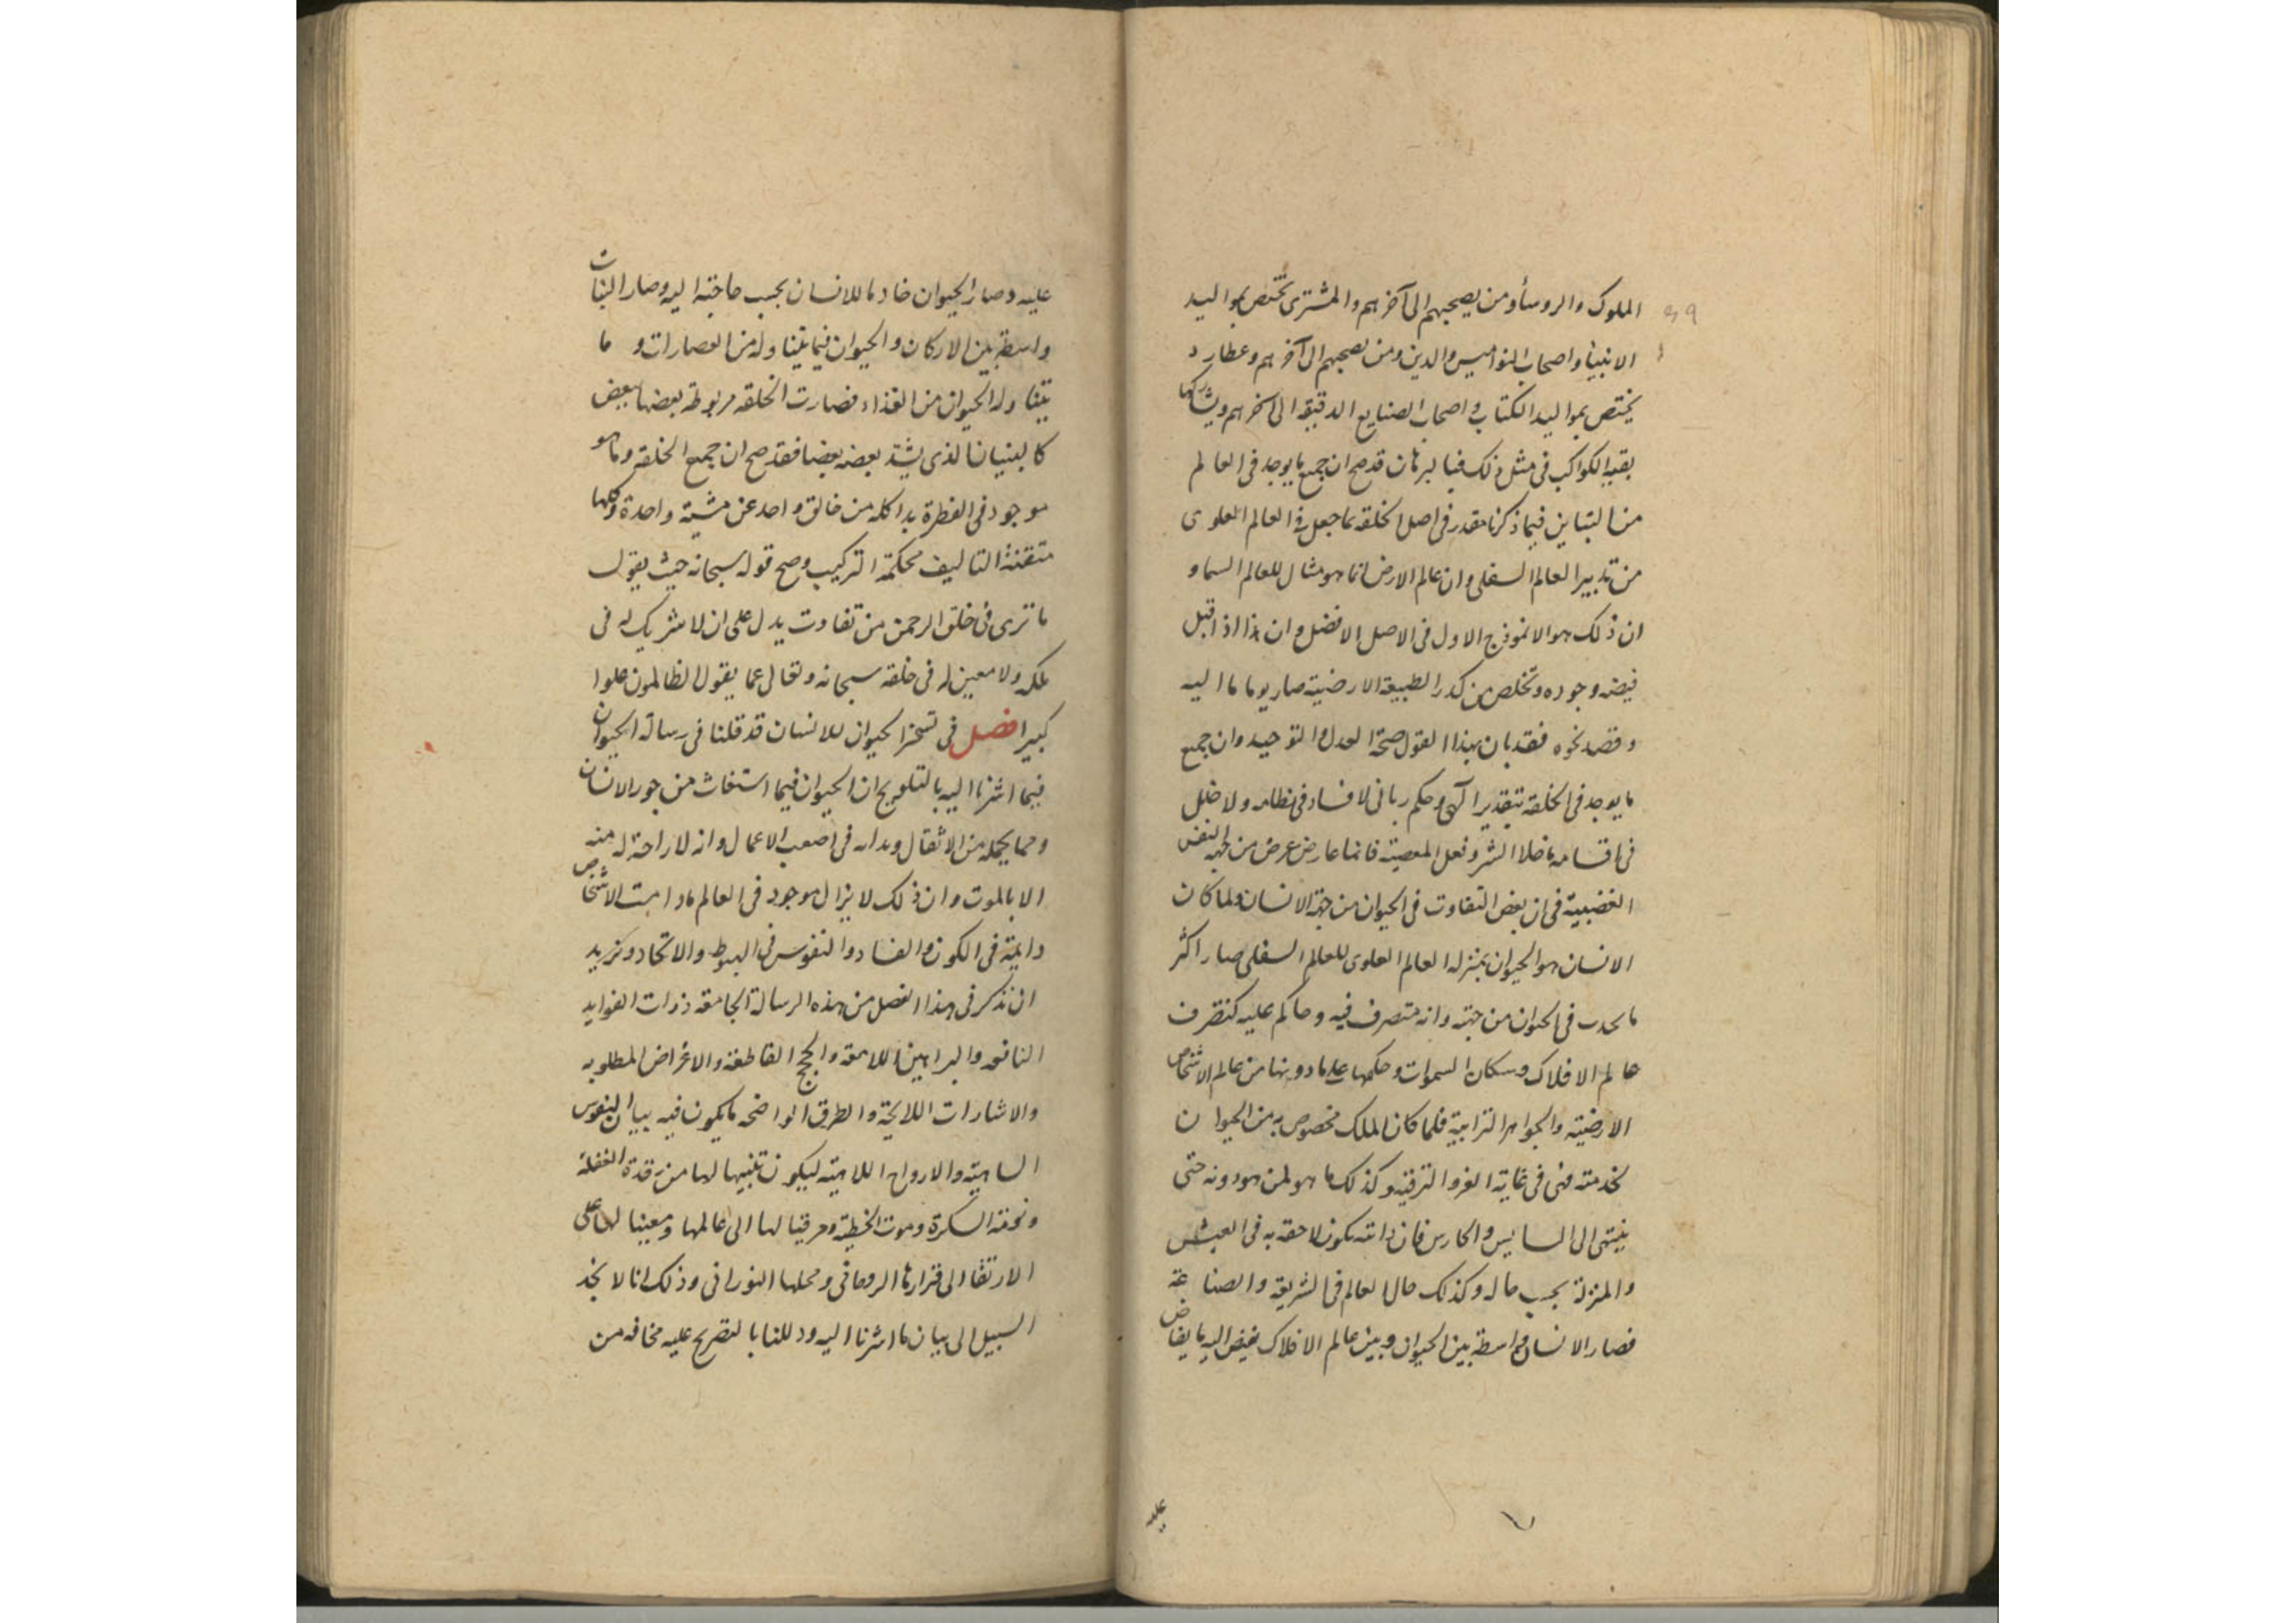 الملوك والروسأ ومن يصحبهم الى آخرهم والمشترى تختص بمواليد
الانبيأ واصحاب النواميس والدين ومن يصحبهم الى آخرهم وعطارد
يختص بمواليد الكتاب واصحاب الصنايع الدقيقة الى آخرهم ويشاركها
بقية الكواكب فى مثل ذلك فبالبرهان قد صح ان جميع ما يوجد فى العالم
من التباين فيما ذكرنا مقدر فى اصل الخلقة بما جعل فى العالم العلوى
من تدبير العالم السفلى وان عالم الارض انما هو مثال للعالم السماو
ان ذلك هو الانموذج الاول فى الاصل الافضل وان هذا اذا قبل
فيضه وجوده وتخلص من كدر الطبيعة الارضية صار يوما ما اليه
وقصد نحوه فقد بان بهذا القول صحة العدل والتوحيد وان جميع
ما يوجد فى الخلقة بتقدير آلهى وحكم ربانى لا فساد فى نظامه ولا خلل
فى اقسامه ما خلا الشر وفعل المعصية فانما عارض عرض من جهة النفس
الغضبية فى ان بعض التفاوت فى الحيوان من جهة الانسان ولما كان
الانسان هو الحيوان بمنزلة العالم العلوى للعالم السفلى صار اكثر
ما يحدث فى الحيوان من جهته وانه متصرف فيه وحاكم عليه كتصرف
عالم الافلاك وسكان السموات وحكمها على ما دونها من عالم الاشخاص
الارضية والجواهر الترابية فلما كان الملك مخصوص به من الحيوان
لخدمته فهى فى غاية العز والترفية وكذلك ما هو لمن هو دونه حتى
ينتهى الى السايس والحارس فان دابته تكون لاحقة به فى العيش
والمنزلة بحسب حاله وكذلك حال العالم فى الشريعة والصناعة
فصار الانسان واسطة بين الحيوان وبين عالم الافلاك يفيض اليه ما يفاض
عليه
عليه وصار الحيوان خادما للانسان بحسب حاجته اليه وصار النبات
واسطة بين الاركان والحيوان فيما يتناوله من العصارات و ما
يتناوله الحيوان من الغذاء فصارت الخلقة مربوطة بعضها ببعض
كالبنيان الذى يشد بعضه بعضا فقد صح ان جميع الخلقة وما هو
موجود فى الفطرة بدا كله من خالق واحد عن مشية واحدة وكلها
متقنة التاليف محكمة التركيب وصح قوله سبحانه حيث يقول
ما ترى فى خلق الرحمن من تفاوت يدل على ان لا شريك له فى
ملكه ولا معين له فى خلقه سبحانه وتعالى عما يقول الظالمون علوا
كبيرا فصل فى تسخر الحيوان للانسان قد قلنا فى رسالة الحيوان
فيما اشرنا اليه بالتلويح ان الحيوان فيما استغاث من جور الانسان
ومما يحمله من الاثقال وبدانه فى اصعب الاعمال وانه لا راحة له منه
الا بالموت وان ذلك لا يزال موجود فى العالم ما دامت الاشخاص
دايمة فى الكون والفساد والنفوس فى الهبوط والاتحاد ونريد
ان نذكر فى هذا الفصل من هذه الرسالة الجامعة ذات الفوايد
النافعه والبراهين اللامعة والحجج القاطعة والاغراض المطلوبه
والاشارات اللايحة والطرق الواضحه ما يكون فيه بيان النفوس
الساهية والارواح اللاهية ليكون تنبيها لها من رقدة الغفلة
السكرة وموت الخطية ومرقيا لها الى عالمها ومعينا لها على
الارتقا الى قرارها الروحانى ومحلها النورانى وذلك انا لا نجد
السبيل الى بيان ما اشرنا اليه ودللنا بالتصريح عليه مخافه من